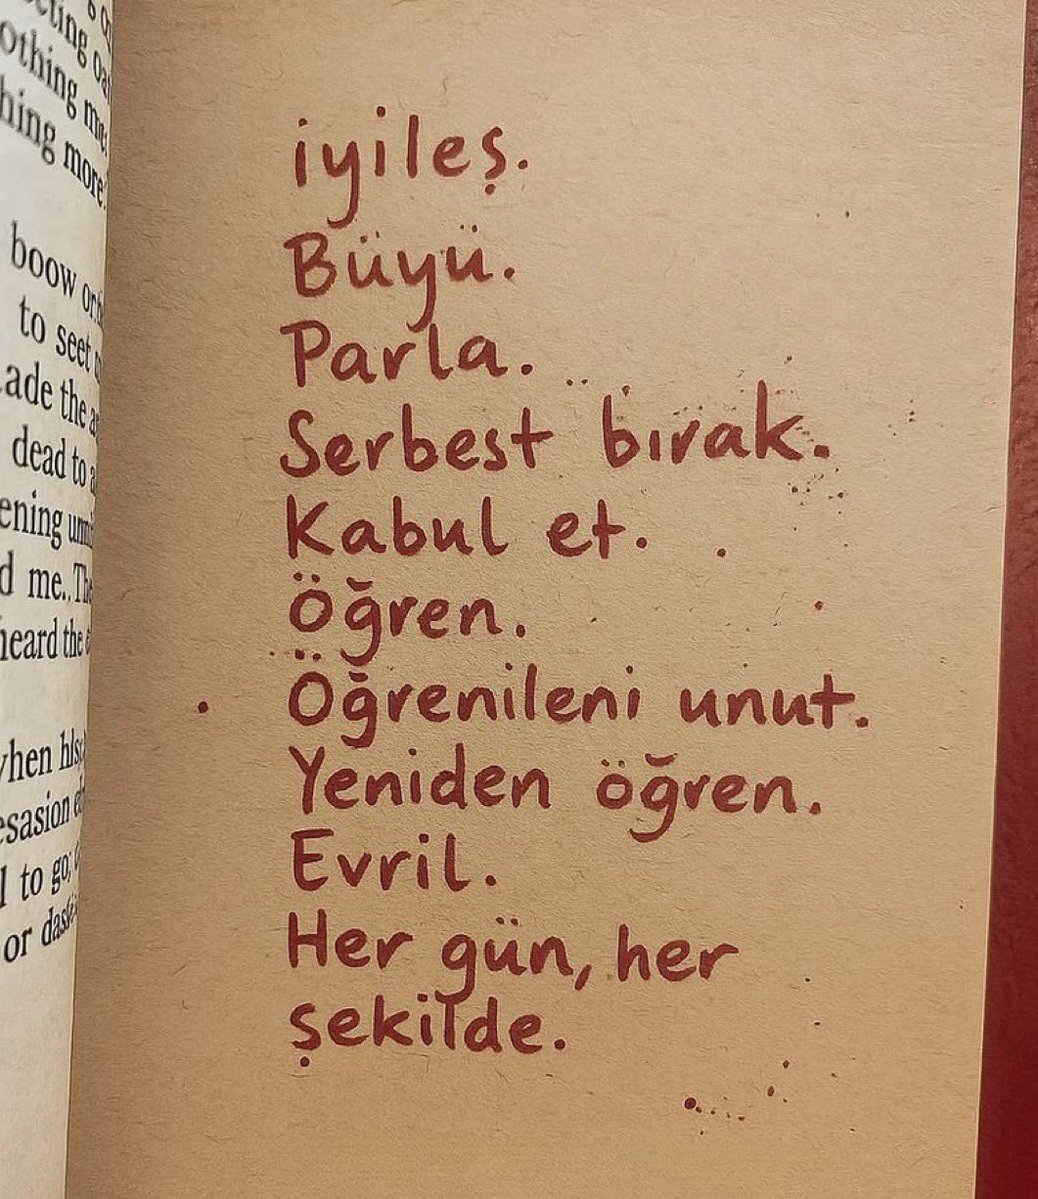 cting oa
othing me
hing more
boow or
to seet
ade the a
dead to a
ening
d me.. Th
heard the
to go;
or
iyileş.
Büyü.
Parla.
Serbest bırak.
Kabul et.
Öğren.
Öğrenileni unut.
Yeniden öğren.
Evril.
Her gün, her
şekilde.